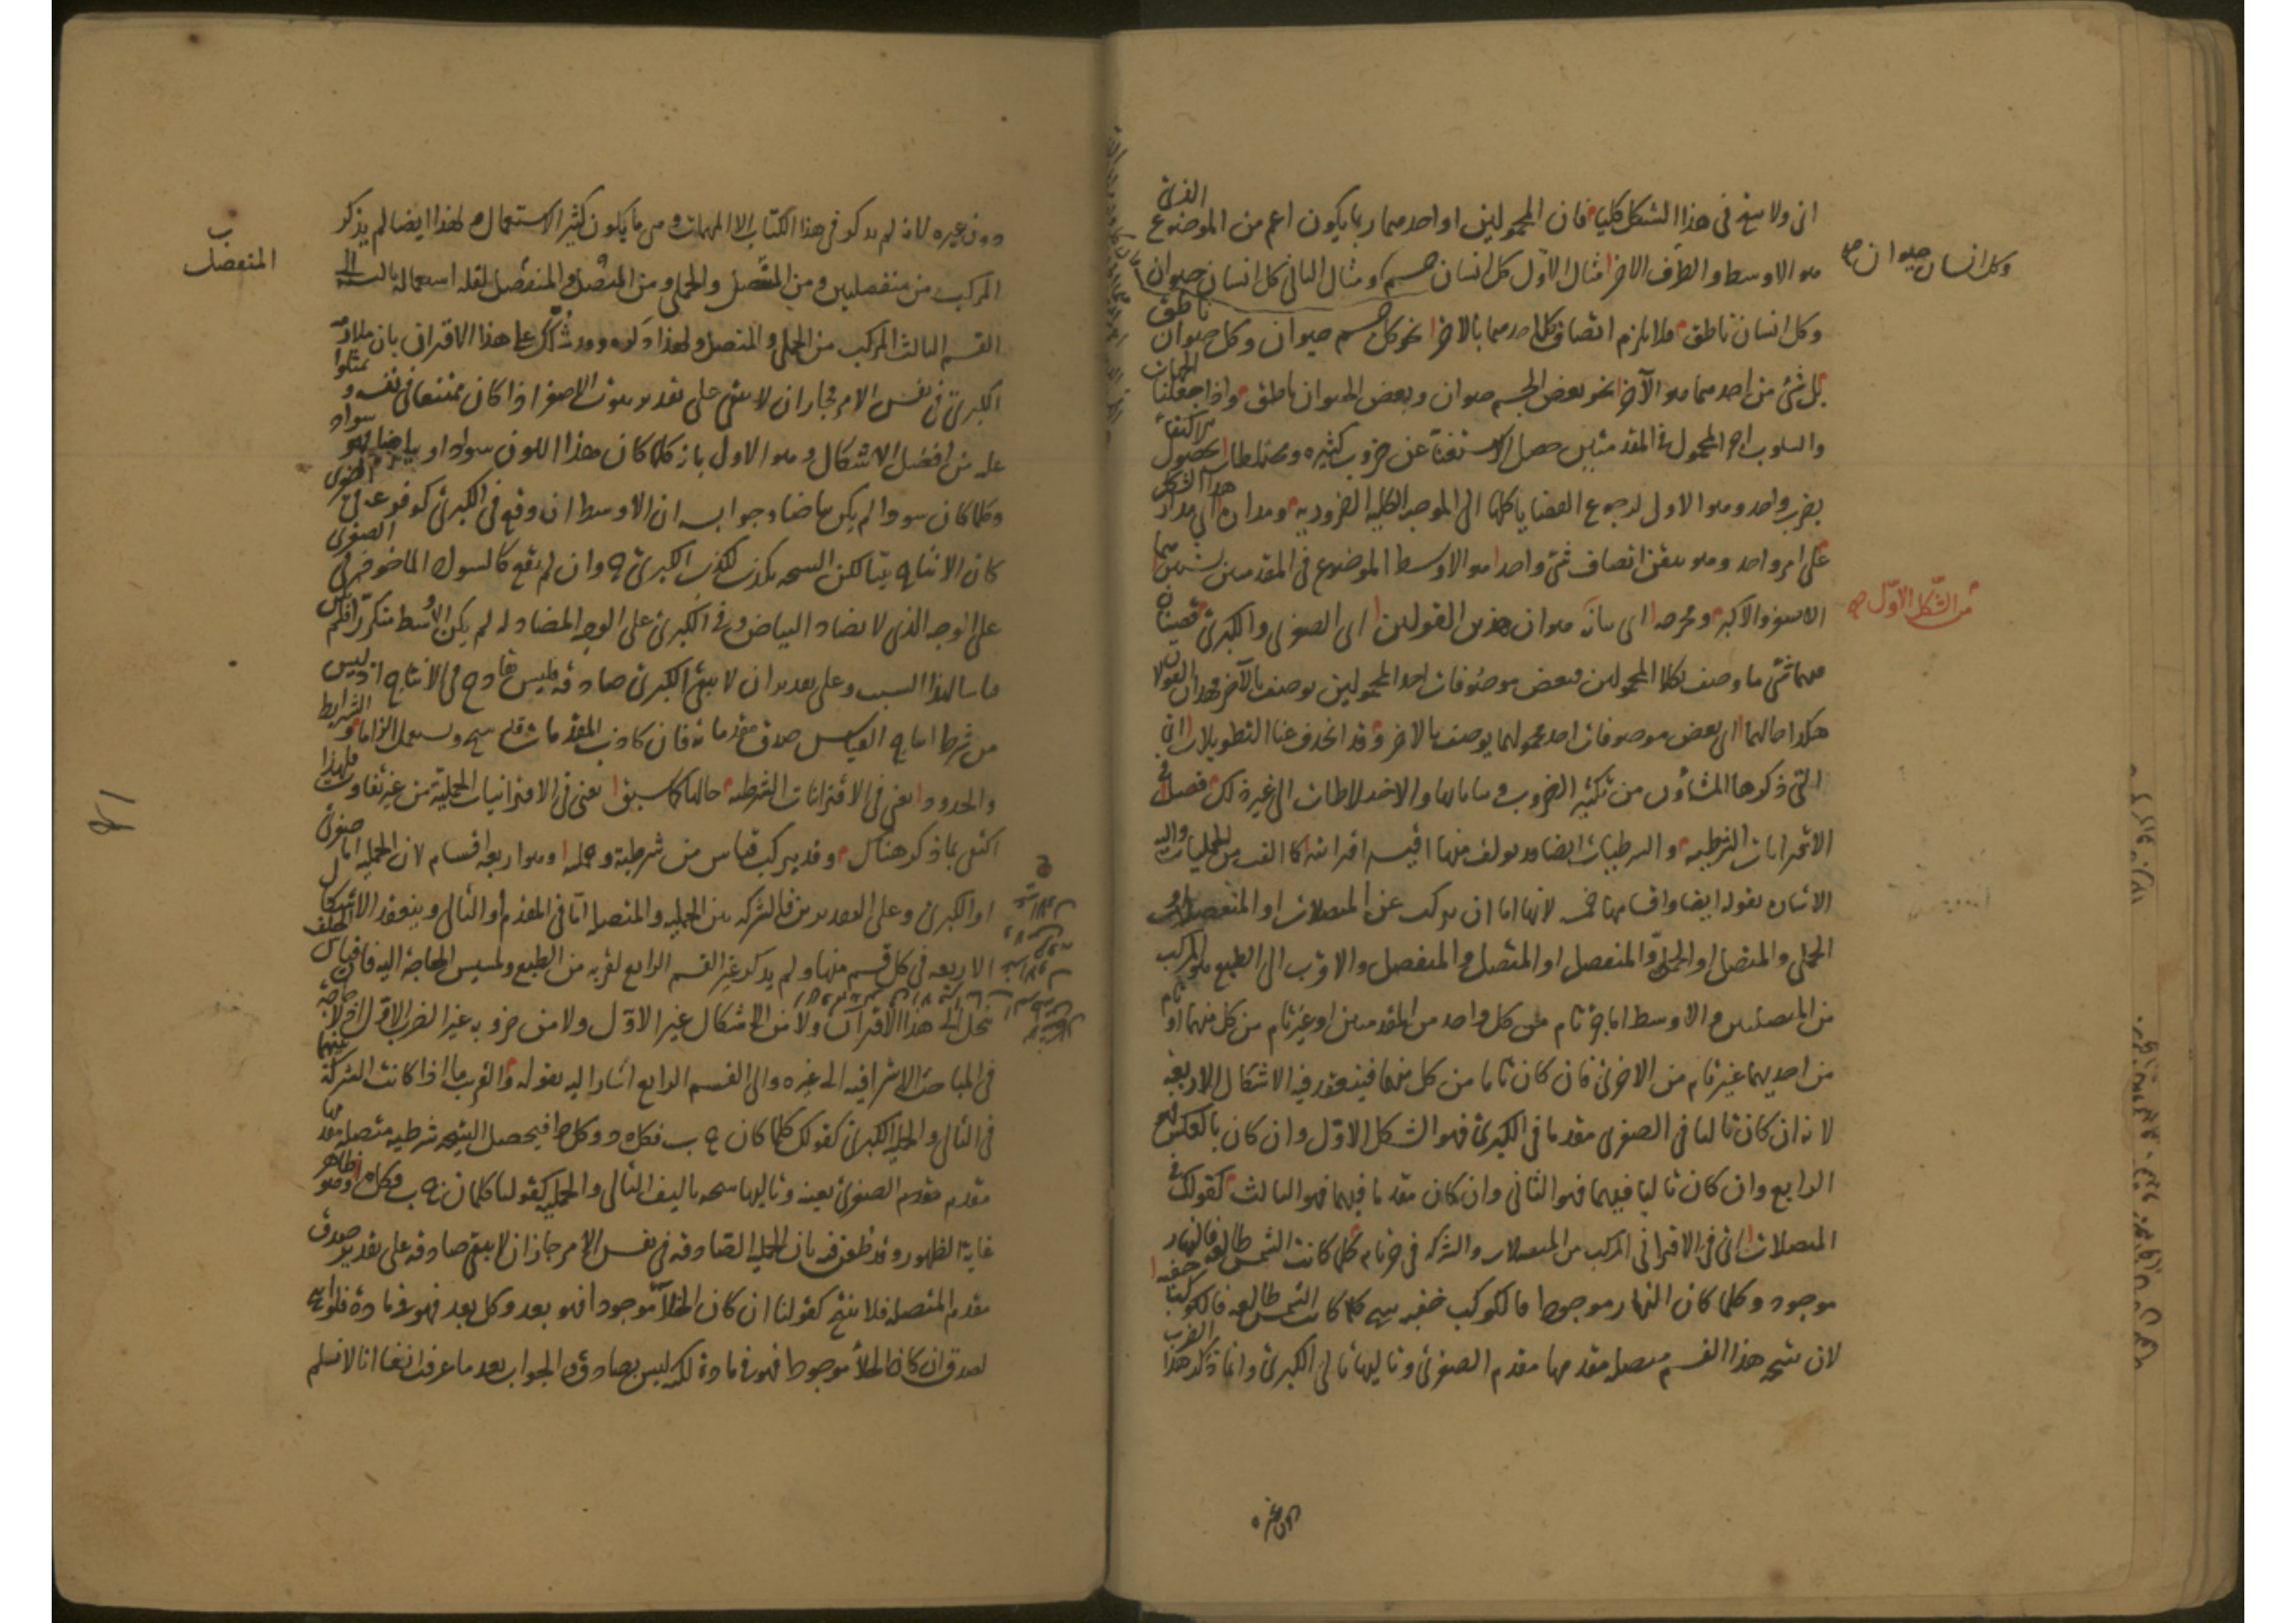 وكل انسان حيوان صح
من الشكل الاول صح
اى ولا ينتج فى هذا الشكل كليا فان المحمولين او احدهما ربما يكون اعم من الموضوع الذى
هو الاوسط والطرف الاخر مثال الاول كل انسان جسم ومثال الثانى كل انسان حيوان
وكل انسان ناطق ولا يلزم اتصاف كل احدهما بالاخر نحو كل جسم حيوان وكل حيوان ناطق
بل شئ من احدهما هو الآخر نحو بعض الجسم حيوان وبعض الحيوان ناطق واذا جعلنا الجهات
والسلوب اجزاء المحمول فى المقدمتين حصل الاستغناء عن ضروب كثيرة ومختلطات
بضرب واحد وهو الاول لرجوع القضايا كلها الى الموجبة الكلية الضرورية ومدار هذا الشكل
على امر واحد وهو تيقن اتصاف شئ واحد هو الاوسط الموضوع فى المقدمتين بشيئين هما
الاصغر والاكبر ومخرجه اى بيانه هو ان هذين القولين اى الصغرى والكبرى قضيتان
فيهما شئ ما وصف بكلا المحمولين فبعض موصوفات احد المحمولين يوصف بالآخر
هكذا حالهما اى بعض موصوفات احد محموليهما يوصف بالاخر وقد انحذف عنا التطويلات اى
التى ذكرها المشاؤن من تكثير الضروب وبياناتها والاختلاطات الى غير ذلك فصل فى
الاقترانيات الشرطية والشرطيات ايضا قد يؤلف منها اقيسة اقترانية كالف من الحمليات واليه
الاشارة بقوله ايضا واقسامها خمسة لانها اما ان يركب عن المتصلات او المنفصلات
الحملى والمتصل او الحملى والمنفصل او المتصل والمنفصل والاقرب الى الطبع هو المركب
من المتصلتين والاوسط اما جزء تام من كل واحد من المقدمتين او غير تام من كل منهما او تام
من احديهما غير تام من الاخرى فان كان تاما من كل منهما فينعقد فيه الاشكال الاربعة
لانه ان كان تاليا فى الصغرى مقدما فى الكبرى فهو الشكل الاول وان كان بالعكس فهو
الرابع وان كان تاليا فيهما فهو الثانى وان كان مقدما فيهما فهو الثالث كقولك فى
المتصلات اى فى الاقترانى المركب من المتصلات والشركة فى جزء تام كلما كانت الشمس طالعة فالنهار
موجود وكلما كان النهار موجودا فالكواكب خفية ينتج كلما كانت الشمس طالعة فالكواكب خفية
لان نتيجة هذا القسم متصلة مقدمها مقدم الصغرى وتاليها تالى الكبرى وانما ذكر هذا الضرب
دون غيره
ب
المنفصل
دون غيره لانه لم يذكر فى هذا الكتاب الا المهمات وهى ما يكون كثير الاستعمال ولهذا ايضا لم يذكر
المركب من منفصلين ومن المتصل والحملى ومن المتصل والمنفصل لقلة استعماله بالنسبة الى
القسم الثالث المركب من الحملى والمتصل ولهذا ذكره وقد شكك على هذا الاقترانى بان ملازمة
الكبرى فى نفس الامر فجاز ان لا يبقى على تقدير ثبوت الاصغر اذا كان ممتنعا فى نفسه و تمثلوا
عليه من افضل الاشكال وهو الاول بانه كلما كان هذا اللون سوادا وبياضا فهو سواد
وكلما كان سوادا لم يكن بياضا وجوابه ان الاوسط ان وقع فى الكبرى كوقوعه فى الصغرى
كان الانتاج بينا لكن النتيجة تكذب لكذب الكبرى ح وان لم يقع كالسواد الماخوذ فى الصغرى
على الوجه الذى لا يضاد البياض وفى الكبرى على الوجه المضاد له لم يكن الاوسط متكررا فلم يكن
قياسا لهذا السبب وعلى تقدير ان لا يبقى الكبرى صادقة فليس قادح فى الانتاج اذ ليس
من شرط انتاج القياس صدق مقدماته فان كاذب المقدمات قد ينتج ويستعمل الزاما و الشرايط
والحدود اعنى فى الاقترانيات الشرطية حالها كما سبق اعنى فى الاقترانيات الحملية من غير تفاوت فلهذا
اكتفى بما ذكر هناك وقد يركب قياس من شرطية وحملية وهو اربعة اقسام لان الحملية اما صغرى
او الكبرى وعلى التقديرين فالشركة بين الحملية والمتصلة اما فى المقدم او التالى وينعقد الاشكال
الاربعة فى كل قسم منها ولم يذكر غير القسم الرابع لقربه من الطبع ولمسيس الحاجة اليه فان قياس الخلف
ينحل الى هذا الاقتران ولا من الاشكال غير الاول ولا من ضروبه غير الضرب الاول اذ لا حاجة
فى المباحث الاشراقية الى غيره والى القسم الرابع اشار اليه بقوله والقريب ما اذا كانت الشركة بينهما
فى التالى والحملية الكبرى كقولك كلما كان ج ب فكل ه د وكل د ا فيحصل النتيجة شرطية متصلة
مقدم مقدم الصغرى بعينه وتاليها نتيجة تاليف التالى والحملية كقولنا كلما كان ج ب فكل ه ا وهو ظاهر
غاية الظهور وقد ظن فيه بان الحملية الصادقة فى نفس الامر جاز ان لا يبقى صادقة على تقدير صدق
مقدم المتصلة فلا ينتج كقولنا ان كان الخلأ موجودا فهو بعد وكل بعد فهو فى مادة فلو انتج
لصدق ان كان الخلأ موجودا فهو فى مادة لكنه ليس بصادق والجواب بعد ما عرفت انفا انا لا نسلم